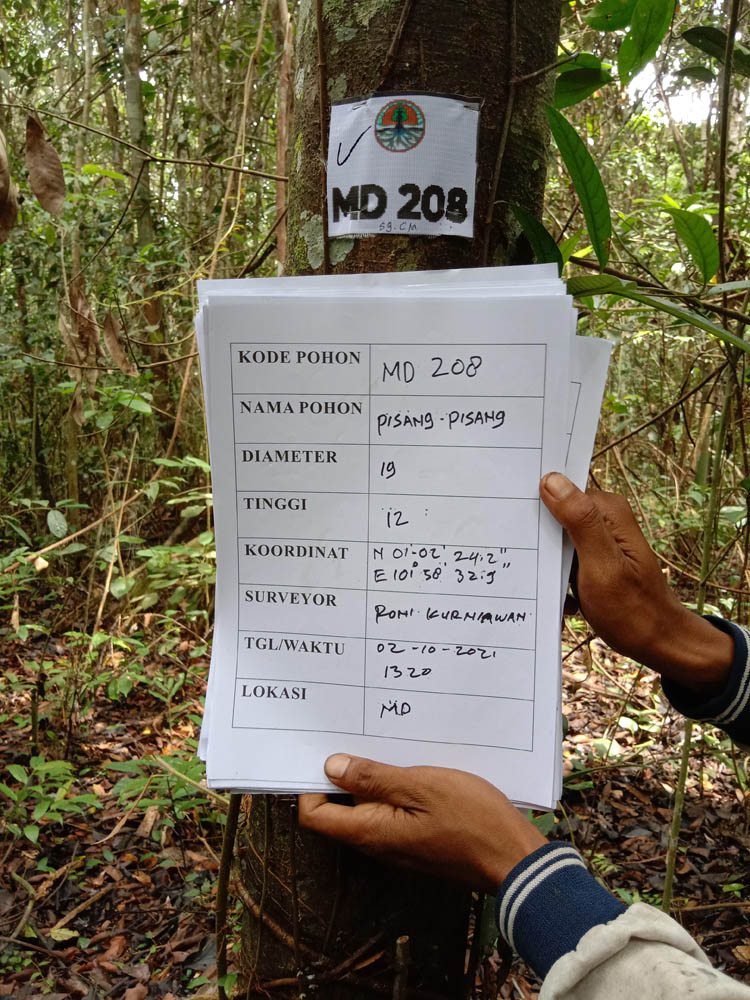 MD 208
59.CM
KODE POHON MD 208
NAMA POHON PISANG-PISANG
DIAMETER 19
TINGGI 12
KOORDINAT N 01°-02' 24.2"
E 101° 58' 32.9"
SURVEYOR RONI KURNIAWAN
TGL/WAKTU 02-10-2021
1320
LOKASI MD